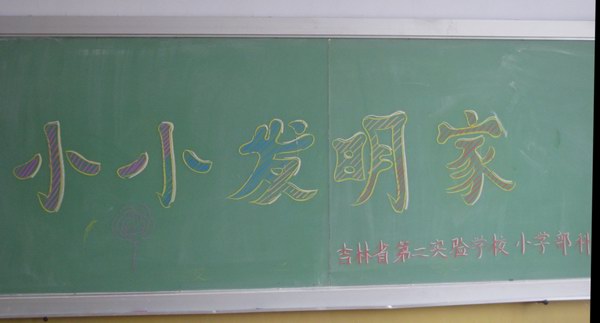 小小发明家
吉林省第二实验学校小学部